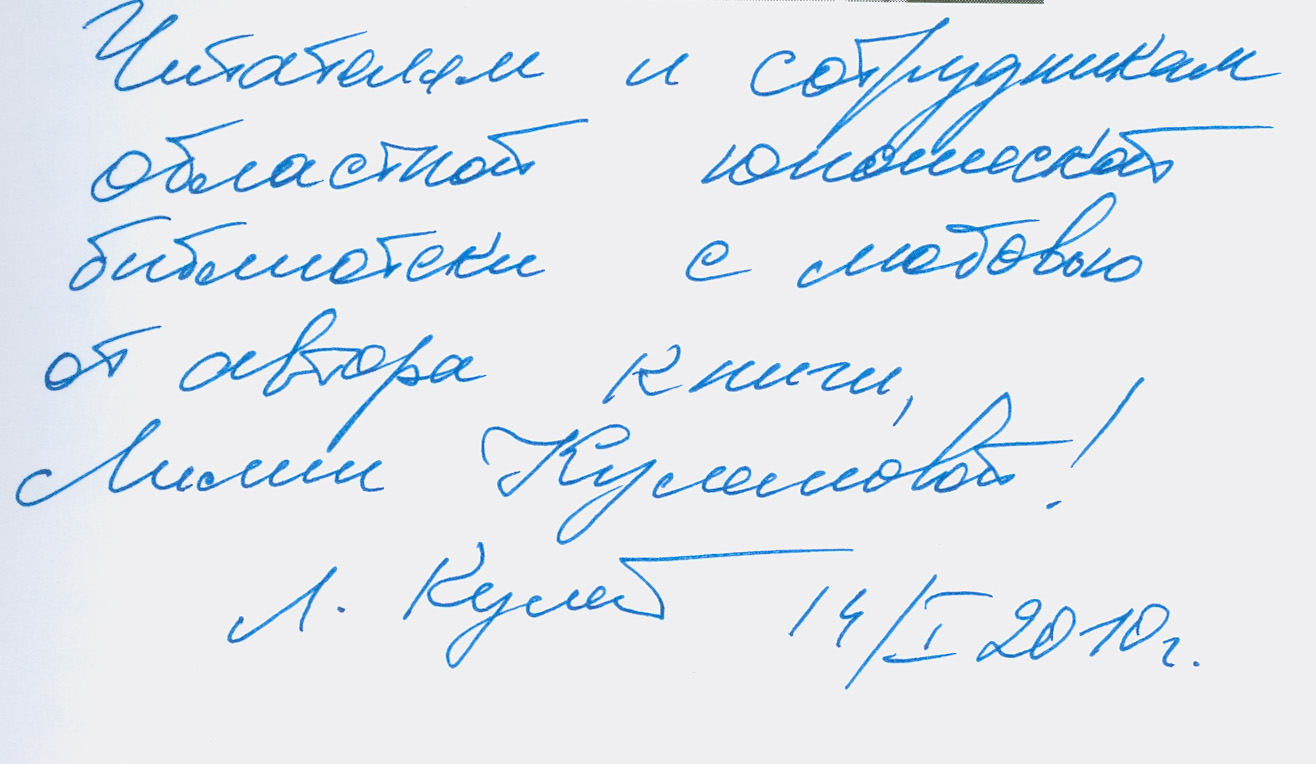 Читателям и сотрудникам
областной юношеской
библиотеки с любовью
от автора книги,
Лилии Кулешовой!
Л. 14/I 2010г.